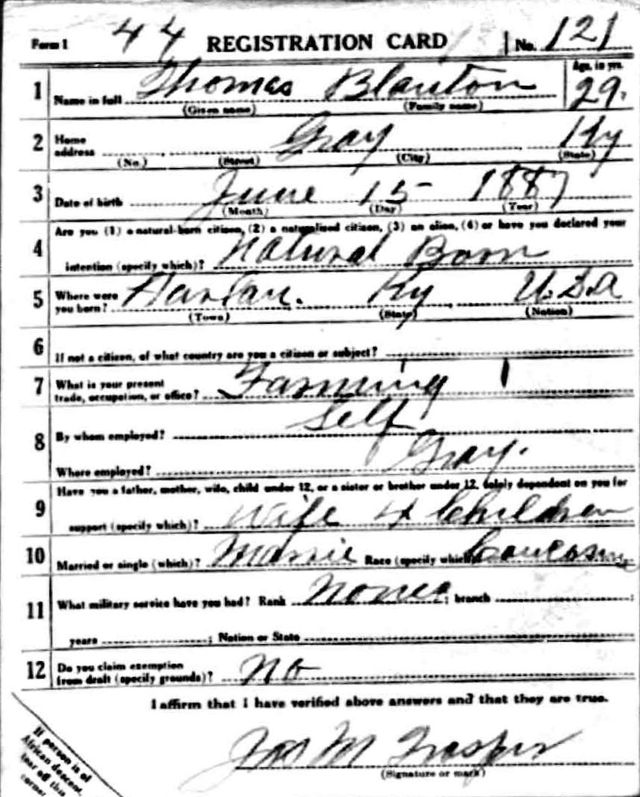 Form 1 44 REGISTRATION CARD No. 121
1 Name in full Thomas Blanton Age, in yrs. 29.
(Given name) (Family name)
2 Home address Gray Ky
(No.) (Street) (City) (State)
3 Date of birth June 15 1887
(Month) (Day) (Year)
4 Are you (1) a natural-born citizen, (2) a naturalized citizen, (3) an alien, (4) or have you declared your
intention (specify which)? Natural Born
5 Where were you born? Harlan. Ky U.S.A
(Town) (State) (Nation)
6 If not a citizen, of what country are you a citizen or subject?
7 What is your present trade, occupation, or office? Farming
8 By whom employed? Self
Where employed? Gray.
9 Have you a father, mother, wife, child under 12, or a sister or brother under 12, solely dependent on you for
support (specify which)? Wife 4 Children
10 Married or single (which)? Marrie Race (specify which)?
11 What military service have you had? Rank None ; branch ;
years ; Nation or State
12 Do you claim exemption from draft (specify grounds)? No
I affirm that I have verified above answers and that they are true.
Jas M
(Signature or mark)
If person is of
African descent,
tear off this
corner